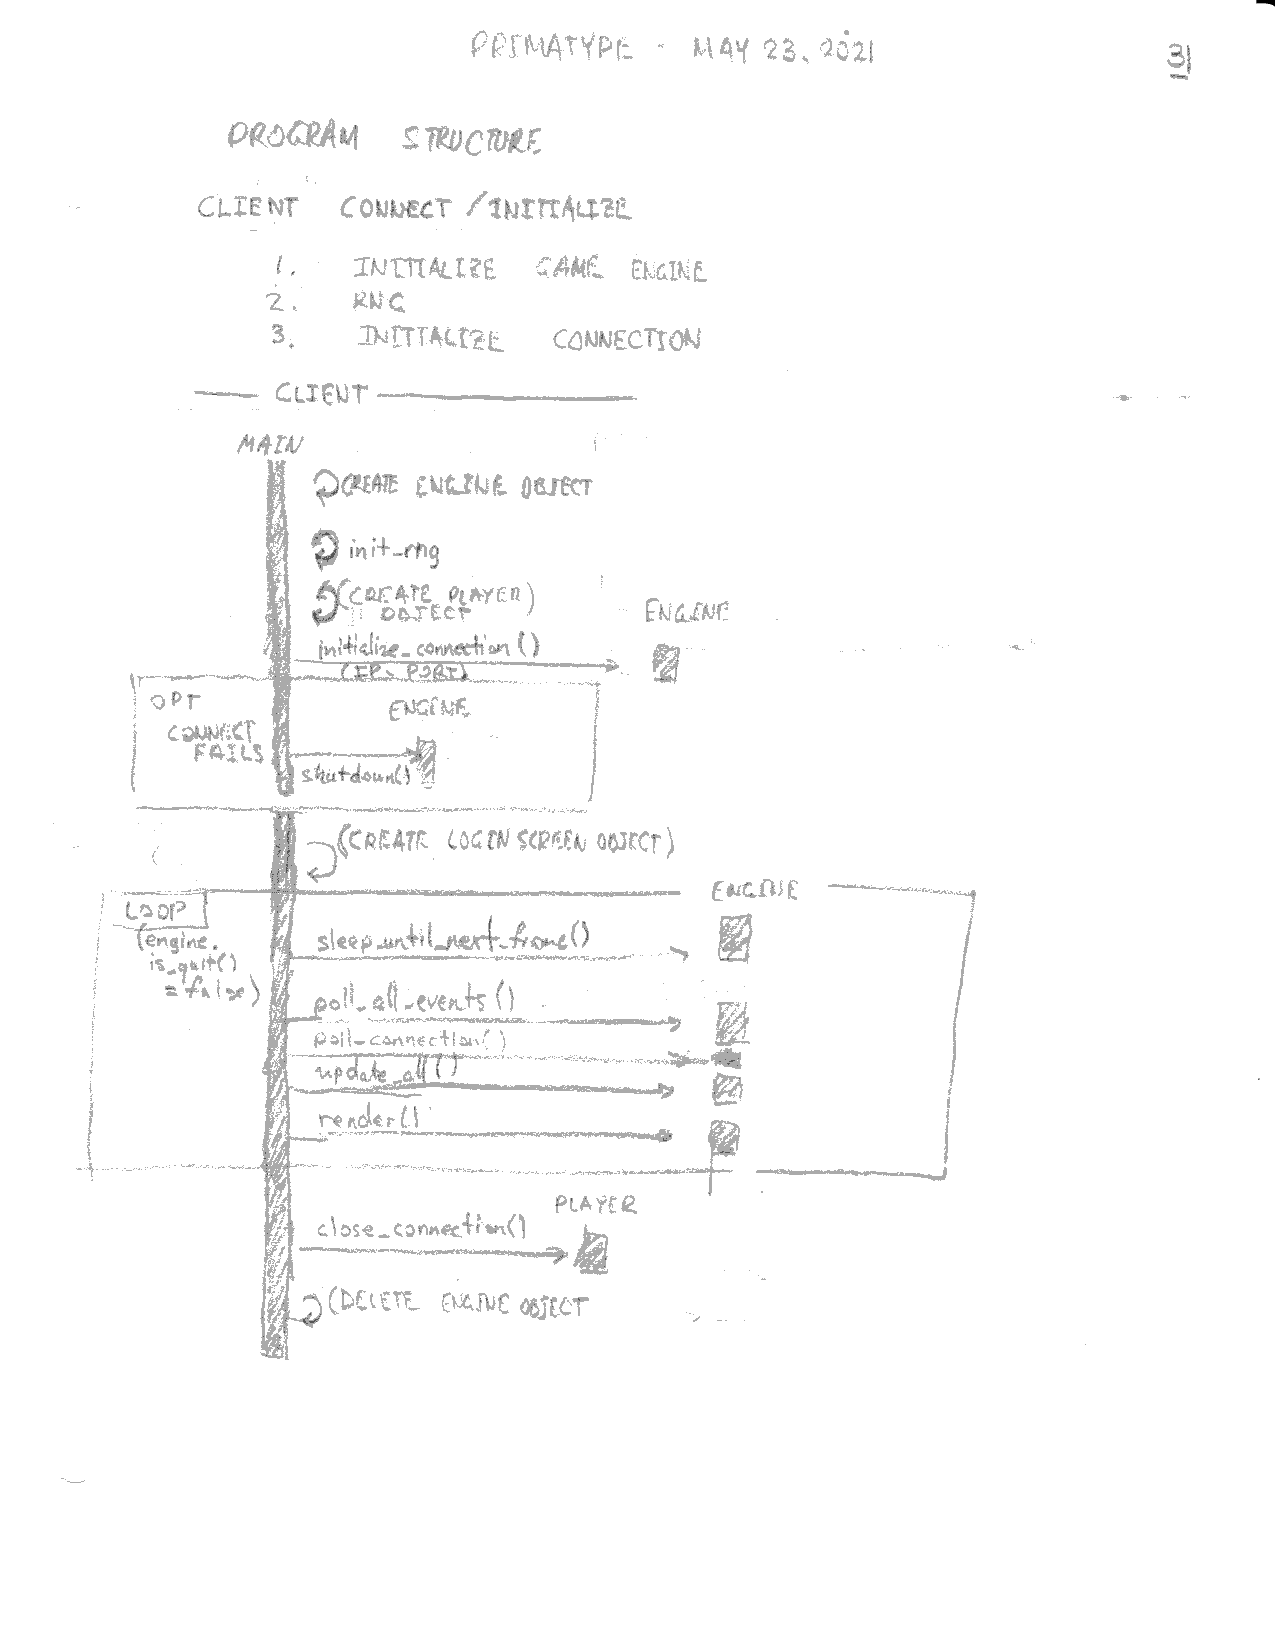 PRIMATYPE - MAY 23, 2021
31
PROGRAM STRUCTURE
CLIENT CONNECT / INITIALIZE
1. INITIALIZE GAME ENGINE
2. RNG
3. INITIALIZE CONNECTION
CLIENT
MAIN
CREATE ENGINE OBJECT
init_rng
(CREATE PLAYER)
OBJECT
ENGINE
initialize_connection()
(IP, PORT)
OPT
CONNECT
FAILS
ENGINE
shutdown()
(CREATE LOGIN SCREEN OBJECT)
ENGINE
LOOP
(engine.
is_quit()
= false)
sleep_until_next_frame()
poll_all_events()
poll_connection()
update_all()
render()
PLAYER
close_connection()
(DELETE ENGINE OBJECT